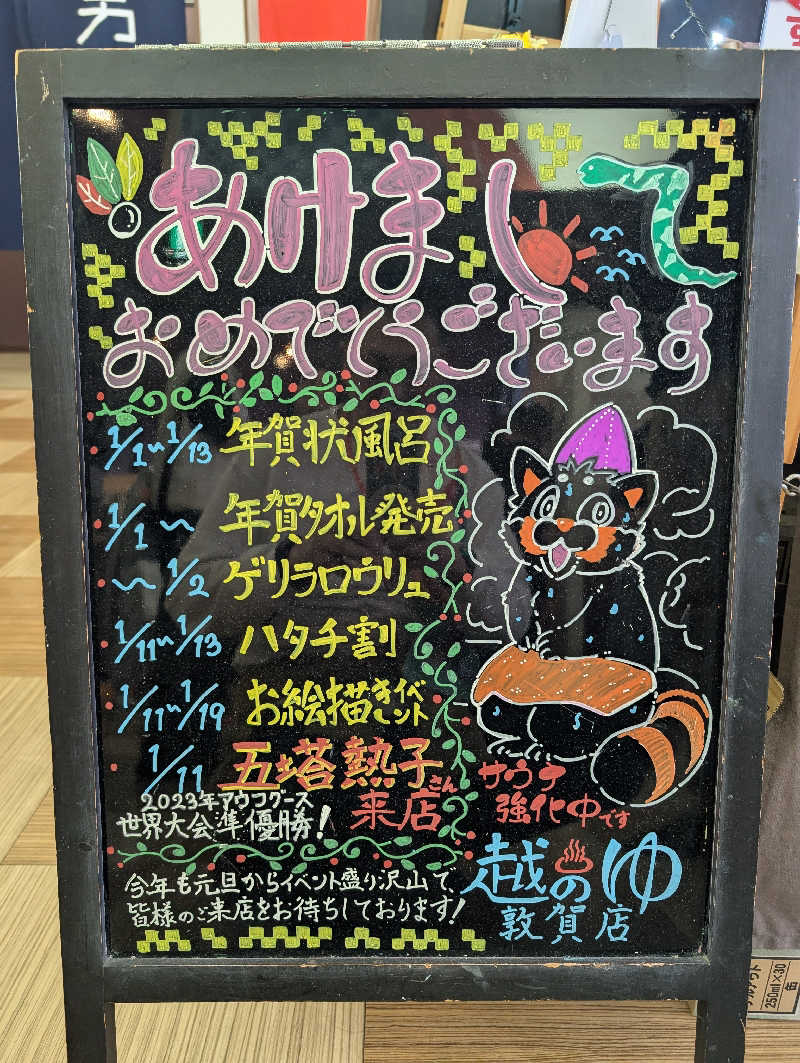 男
あけまして
おめでとうございます
1/1〜1/13 年賀状風呂
1/1〜 年賀タオル発売
〜1/2 ゲリラロウリュ
1/11〜1/13 ハタチ割
1/11〜1/19 お絵描きイベント
1/11 五塔熱子さん
来店
2023年アウフグース
世界大会準優勝!
サウナ
強化中です
今年も元旦からイベント盛り沢山で、
皆様のご来店をお待ちしております!
越のゆ
敦賀店
250ml×30
缶